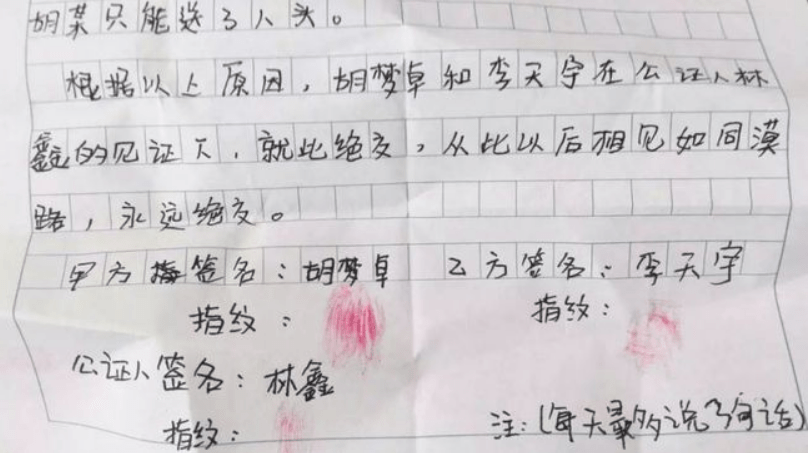 胡某只能送了人头。
根据以上原因，胡梦卓和李天宇在公证人林
鑫的见证下，就此绝交，从此以后相见如同漠
路，永远绝交。
甲方签名：胡梦卓 乙方签名：李天宇
指纹： 指纹：
公证人签名：林鑫
指纹：
注：(每天最多说3句话)